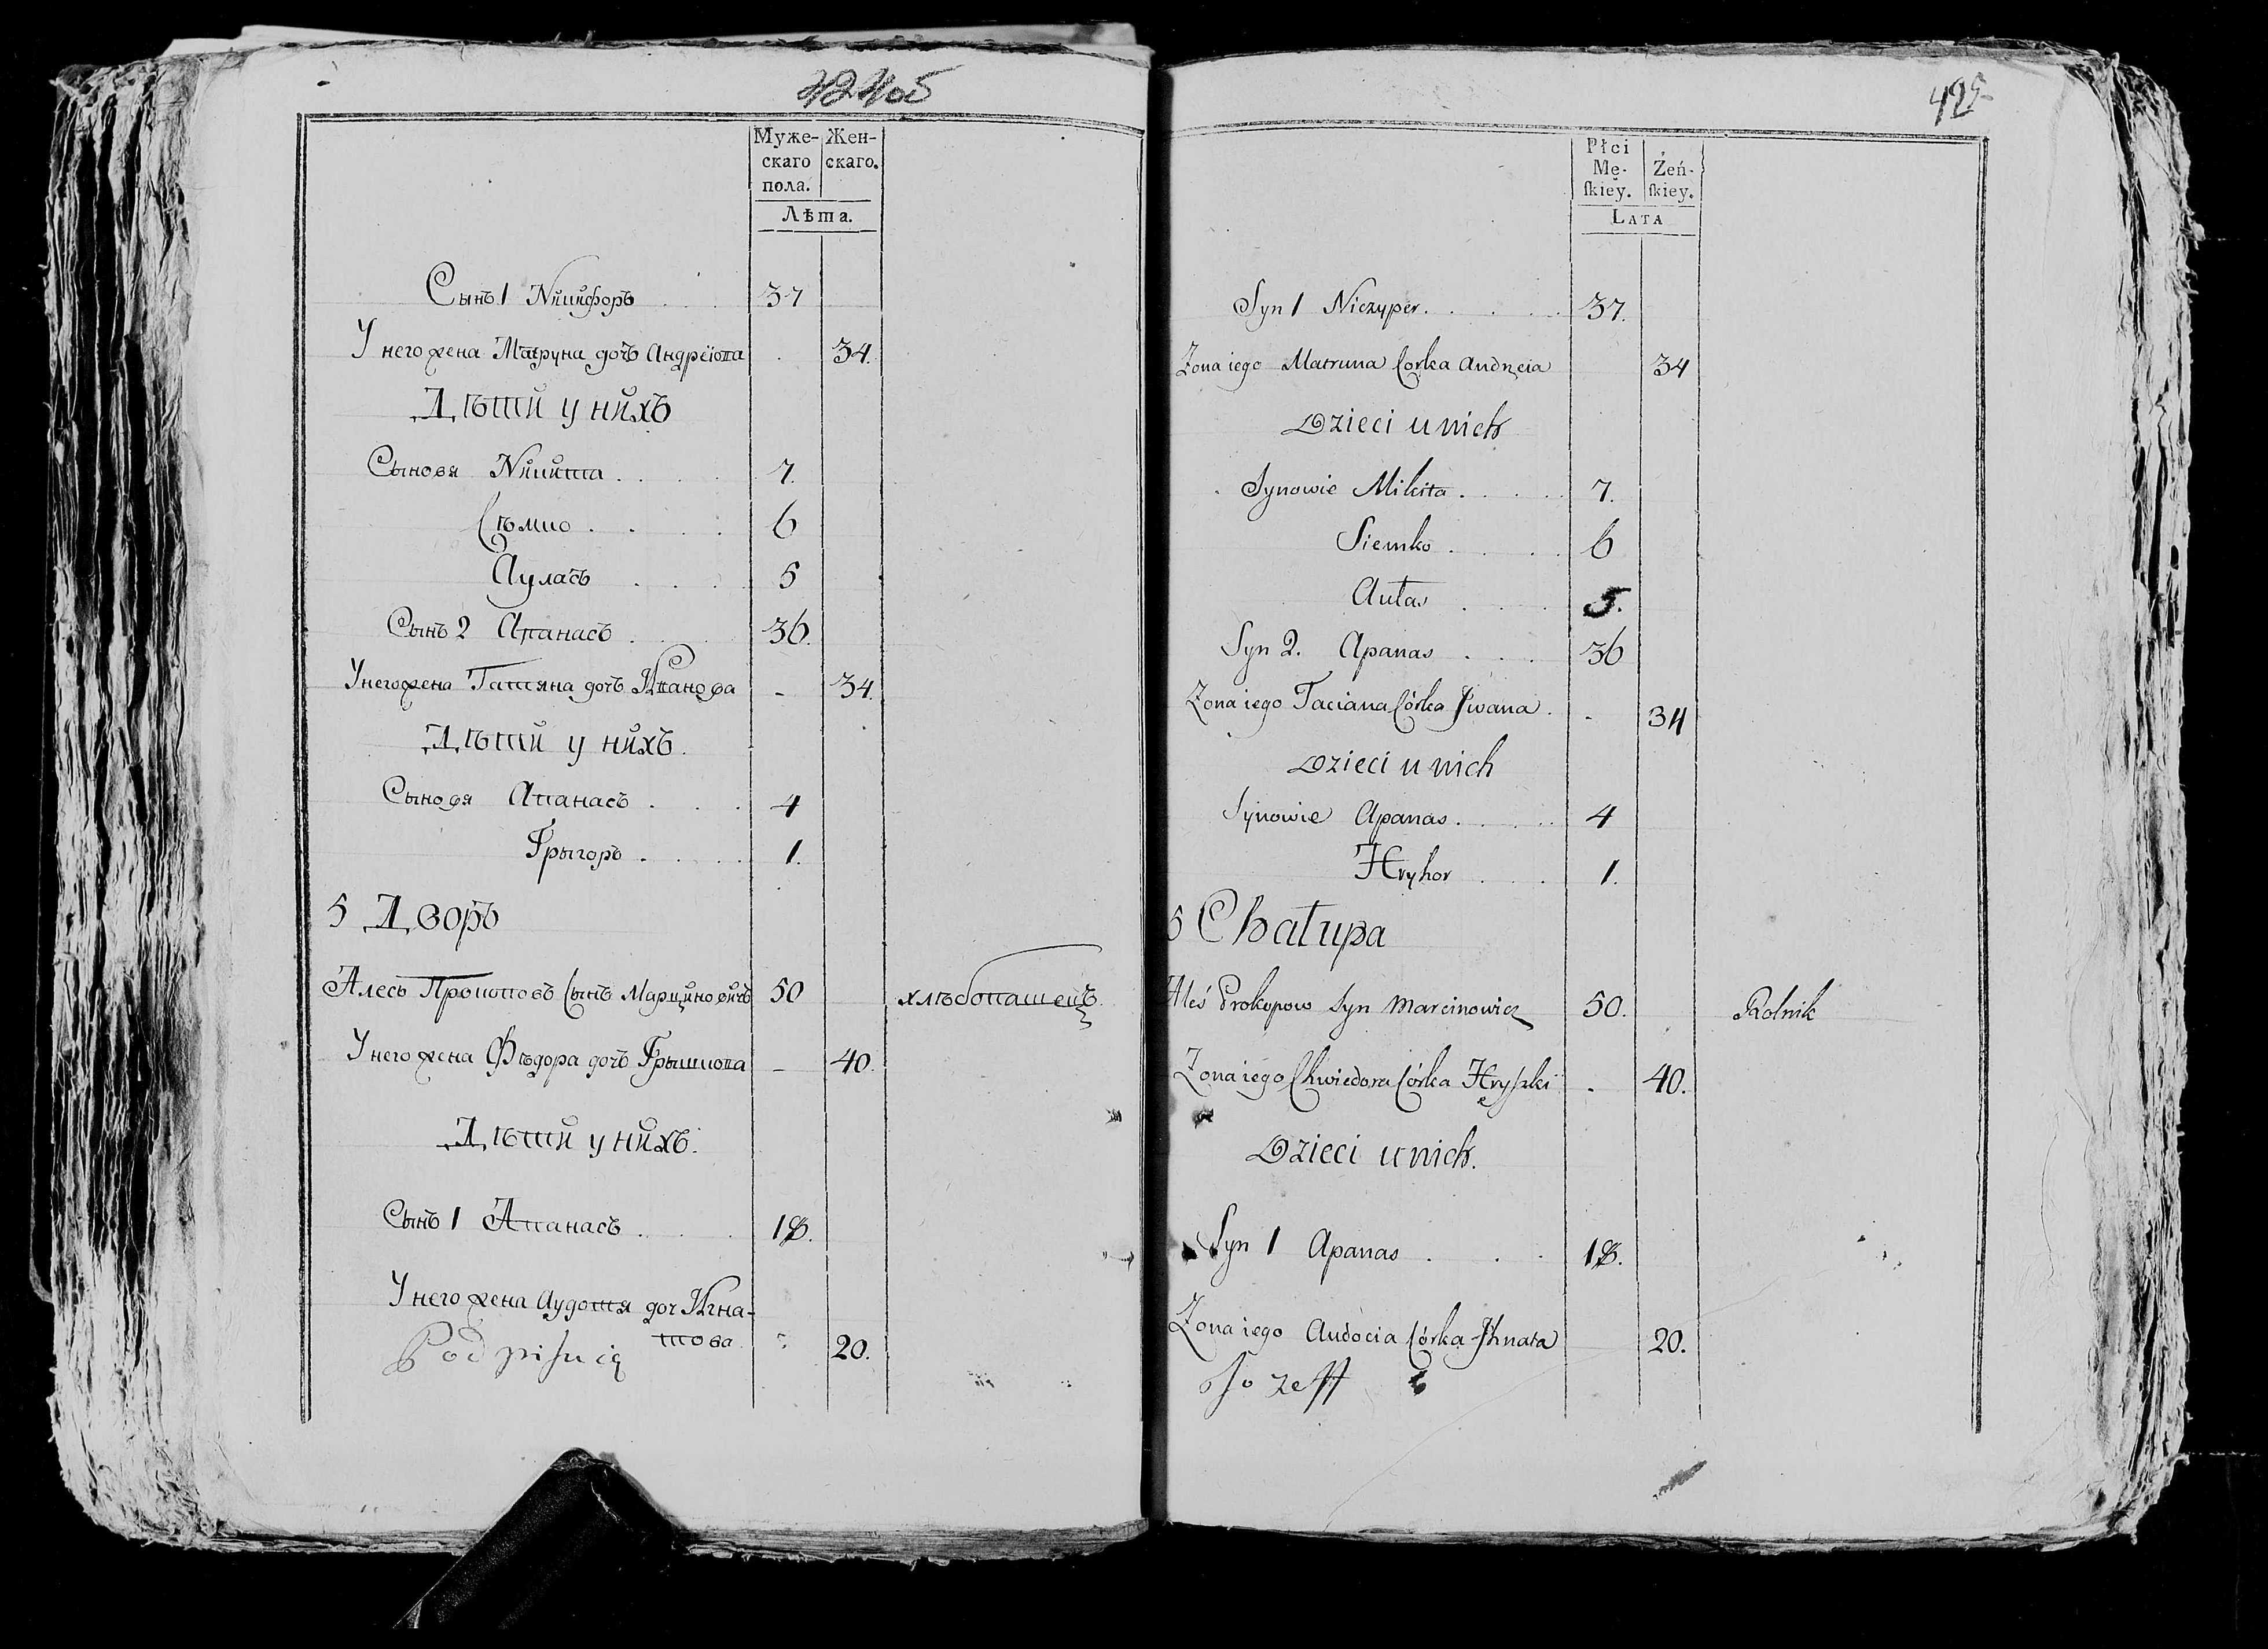 424об
Муже-
скаго
пола.
Жен-
скаго.
Лѣта.
Сынъ 1 Никифоръ . . . 37
У него жена Матруна дочъ Андреіова . 34.
Дѣти у нихъ
Сыновя Никита . . . . 7.
Сѣмко . . . . 6
Ауласъ . . . 5
Сынъ 2 Апанасъ . . . 36.
У него жена Татяна дочъ Иванова - 34.
Дѣти у нихъ.
Сыновя Апанасъ . . . 4
Грыгоръ . . . . 1.
5 Дворъ
Алесь Прокоповъ Сынъ Марциновичъ 50 хлѣбопашецъ.
У него жена Фѣдора дочъ Грышкова - 40.
Дѣти у нихъ.
Сынъ 1 Апанасъ . . . 18.
У него жена Аудотя доч Игна-
това 20.
Podpisuię
425
Płci
Mę-
ſkiey.
Żeń-
ſkiey.
Lata
Syn 1 Niczyper . . . . . 37.
Zona iego Matruna Corka Andrzeia 34
Dzieci u nich
Synowie Mikita . . . . 7.
Siemko . . . . 6
Aułas . . . 5.
Syn 2. Apanas . . . 36
Zona iego Taciana Córka Jwana . - 34
Dzieci u nich
Synowie Apanas . . . . 4
Hryhor . . . 1.
5 Chałupa
Aleś Prokopow Syn Marcinowicz 50. Rolnik
Zona iego Chwiedora Córka Hryszki - 40.
Dzieci u nich.
Syn 1 Apanas . . . 18.
Zona iego Audocia Córka Jhnata 20.
Jozeff